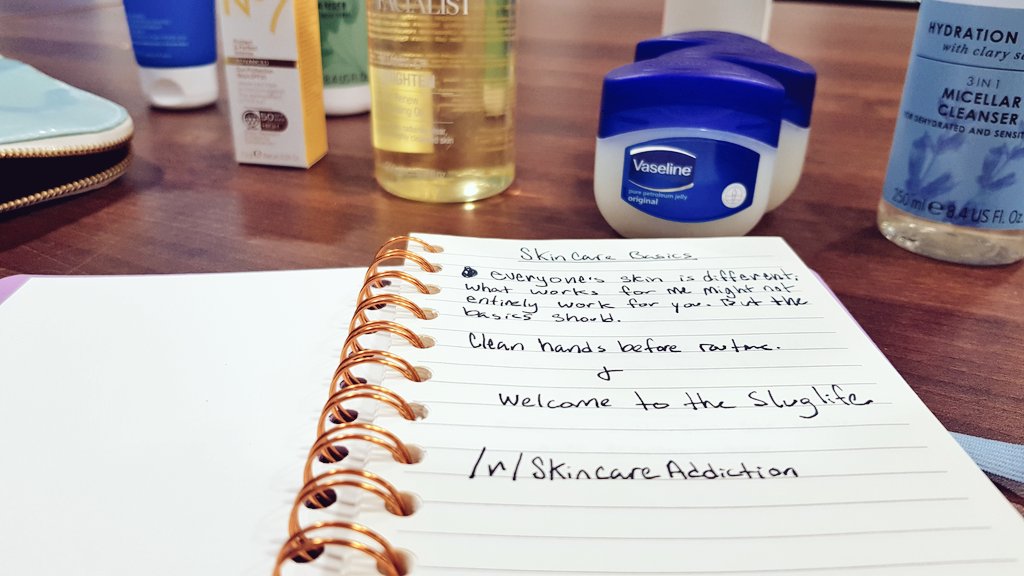 No7
ADVANCED
50
FACIALIST
Vaseline
pure petroleum jelly
original
HYDRATION
with clary
3 IN 1
MICELLAR
CLEANSER
FOR DEHYDRATED AND
250 ml e 8.4 US Fl. Oz
Skincare Basics
everyone's skin is different.
what works for me might not
entirely work for you. But the
basics should.
Clean hands before routine.
+
Welcome to the Sluglife
/r/SkincareAddiction